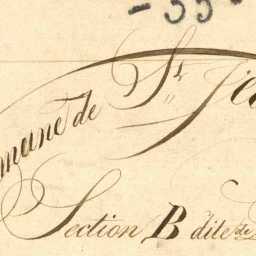 - 55 -
mune de St
Section B dite de